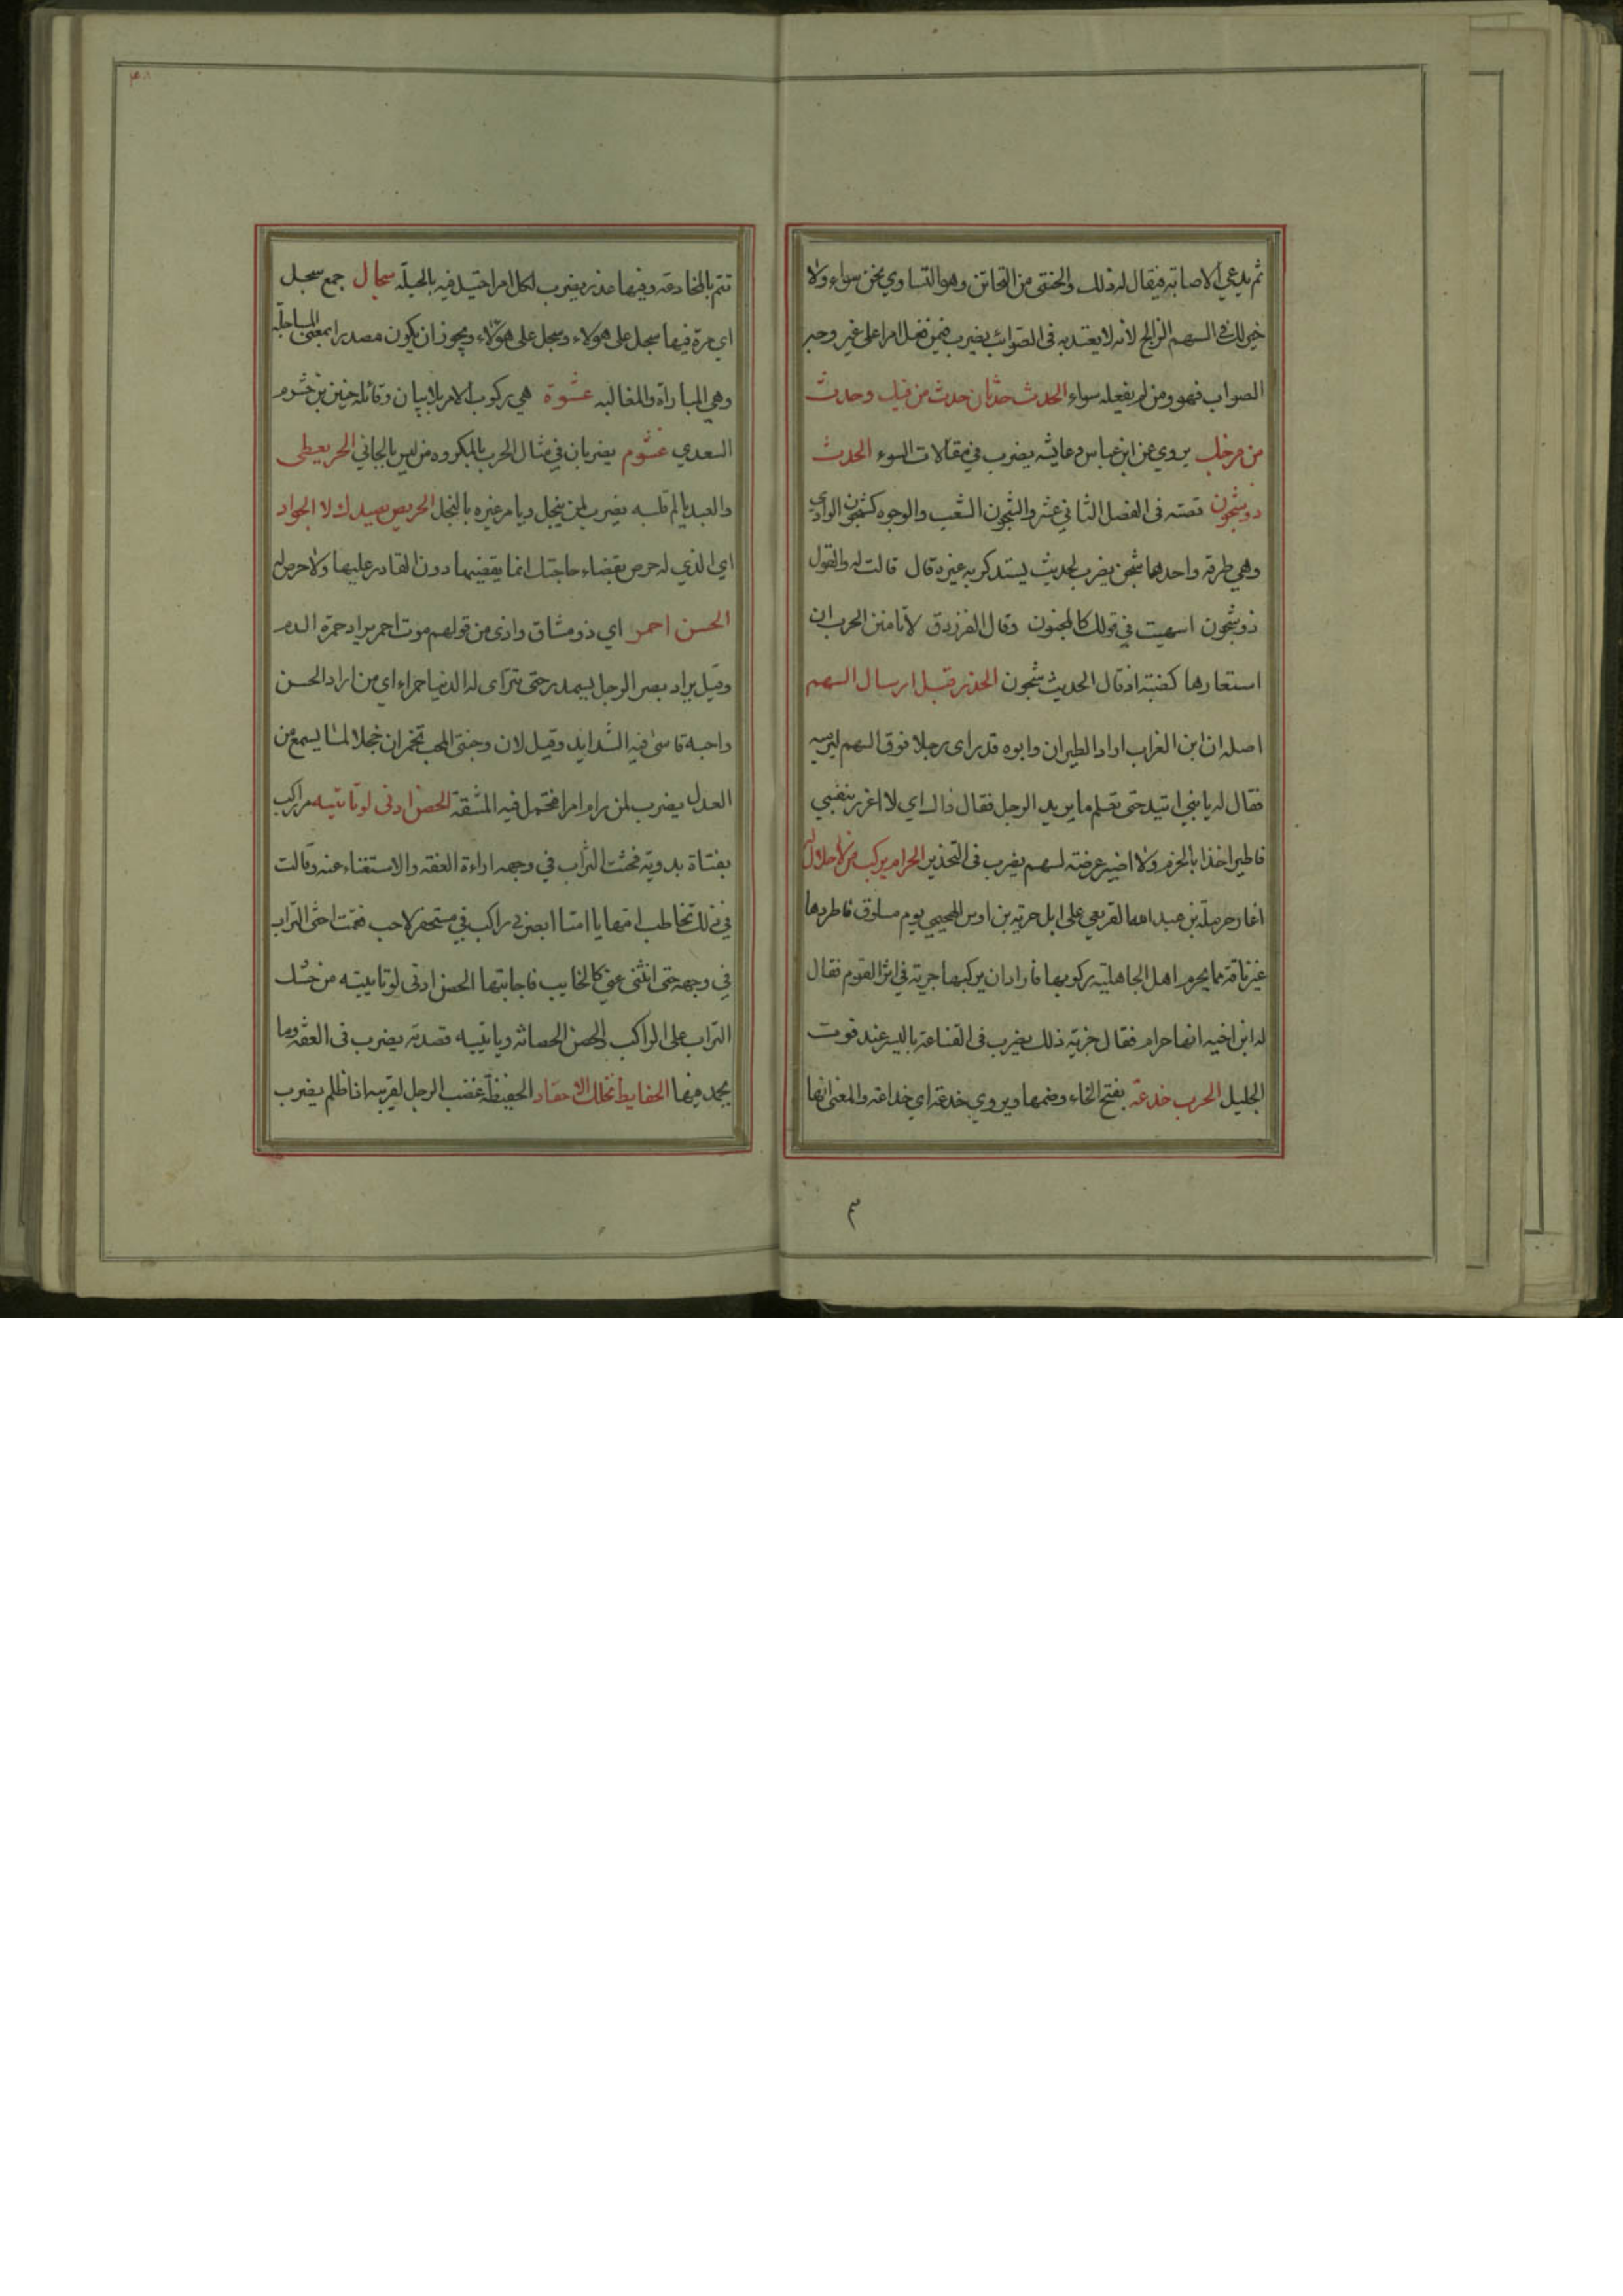 ثم يدعي الاصابة فيقال له ذلك والحتنى من التحاتن وهو التساوي نحن سواء ولا
خير لك في السهم الزالج لانه لا يعتد به في الصوائب يضرب فيمن فعل امرا على غير وجه
الصواب فهو ومن لم يفعله سواء الحدث حدثان حدث من فيك وحدث
من فرجك يروي عن ابن عباس وعايشه يضرب في مقالات السوء الحديث
ذو شجون قصته في الفصل الثاني عشر والشجون الشعب والوجوه كشجون الوادي
وهي طرقه واحدها شجن يضرب لحديث يستدكر به غيره قال قالت له والقول
ذو شجون اسهبت في قولك كالمجنون وقال الفرزدق لا تامنن الحرب ان
استعارها كضبة اذ قال الحديث شجون الحذر قبل ارسال السهم
اصله ان ابن الغراب اراد الطيران وابوه قد راى رجلا فوق السهم ليرميه
فقال له يا بني اتيد حتى تعلم ما يريد الرجل فقال ذاك اي لا اغرر بنفسي
فاطير اخذا بالحزم ولا اصير عرضة لسهم يضرب في التحذير الحرام يركب من لا حلال له
اغار حرملة بن عبد الله القريعي على ابل جرية بن اوس الهجيمي يوم مسلوق فاطردها
غير ناقة مما يحرم اهل الجاهلية ركوبها فاراد ان يركبها جرية في اثر القوم فقال
له ابن اخيه انها حرام فقال جرية ذلك يضرب في القناعة باليسير عند فوت
الجليل الحرب خدعة بفتح الخاء وضمها ويروي خدعة اي خداعة والمعنى انها
تتم بالمخادعة وفيها عذر يضرب لكل امر احتيل فيه بالحيلة سجال جمع سجل
اي مرة فيها سجل على هولاء وسجل على هولاء ويجوز ان يكون مصدرا بمعنى المساجلة
وهي المباراة والمغالبه عشوة هي ركوب الامر بلا بيان وقائله حنين بن خشرم
السعدي غشوم يضربان في مثال الحرب بالمكروه من ليس بالجاني الحر يعطى
والعبد يالم قلبه يضرب لمن يبخل ويامر غيره بالبخل الحريص يصيدك لا الجواد
اي الذي له حرص بقضاء حاجتك انما يقضيها دون القادر عليها ولا حرص له
الحسن احمر اي ذو مشاق واذى من قولهم موت احمر يراد حمرة الدم
وقيل يراد بصر الرجل يسمدر حتى تتراى له الدنيا حمراء اي من اراد الحسن
واحبه قاسى فيه الشدايد وقيل لان وجنتى المحب تحمران خجلا لما يسمع من
العدل يضرب لمن رام امرا فتحمل فيه المشقة الحصن ادنى لو تاييته مر راكب
بفتاة بدوية فحثت التراب في وجهه اراءة العفة والاستغناء عنه وقالت
في ذلك تخاطب امها يا امتا ابصرني راكب في مسحنفر لاحب فقمت احثى التراب
في وجهه حتى انثنى عني كالخايب فاجابتها الحصن ادنى لو تاييته من حثيك
التراب على الراكب والحصن الحصانه وتاييته قصدته يضرب في العفه وما
يحمد فيها الحفايظ تحلل الاحقاد الحفيظة غضب الرجل لقريبه اذا ظلم يضرب